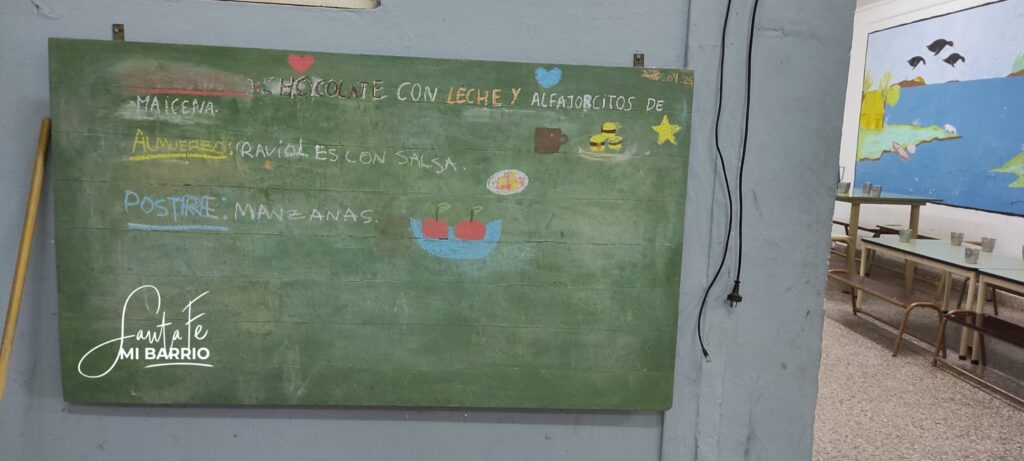 CHOCOLATE CON LECHE Y ALFAJORCITOS DE
MAICENA.
ALMUERZO: RAVIOLES CON SALSA.
POSTRE: MANZANAS.
Santa Fe
MI BARRIO